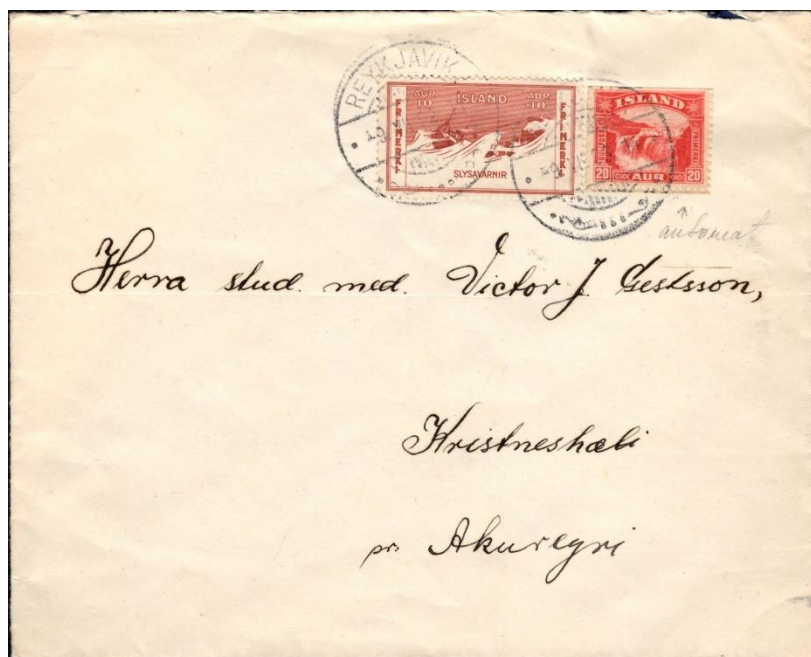 REYKJAVIK
AUR 10 ISLAND AUR +10
FRIMERKI FRIMERKI
SLYSAVARNIR
ISLAND
20 AUR 20
automat
Herra stud. med. Victor J. Gestsson,
Kristneshæli
pr. Akureyri